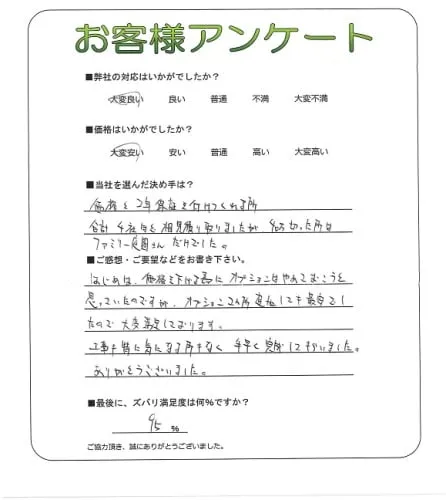 お客様アンケート
■弊社の対応はいかがでしたか？
大変良い 良い 普通 不満 大変不満
■価格はいかがでしたか？
大変安い 安い 普通 高い 大変高い
■当社を選んだ決め手は？
価格と2年保証を付けてくれる所
合計4社程相見積り取りましたが 的な所は
ファミリー庭園さんだけでした。
■ご感想・ご要望などをお書き下さい。
はじめは、価格を下げる為にオプションはやめておこうと
思っていたのですが、オプション2ヵ所追加しても最安でし
たので大変満足しております。
工事も特に気になる所もなく 手早く完成して下さいました。
ありがとうございました。
■最後に、ズバリ満足度は何％ですか？
95 %
ご協力頂き、誠にありがとうございました。